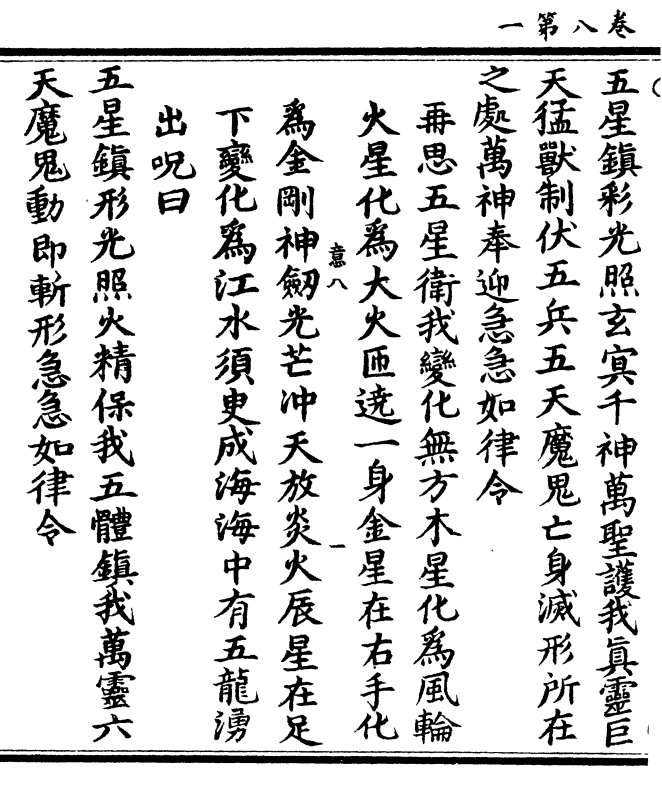 卷八第一
五星鎮彩光照玄㝠千神萬聖護我眞靈巨
天猛獸制伏五兵五天魔鬼亡身滅形所在
之處萬神奉迎急急如律令
再思五星衛我變化無方木星化爲風輪
火星化爲大火匝遶一身金星在右手化
爲金剛神劒光芒冲天放炎火辰星在足
下變化爲江水須史成海海中有五龍湧
出呪曰
五星鎮形光照火精保我五體鎮我萬靈六
天魔鬼動即斬形急急如律令
意八
一